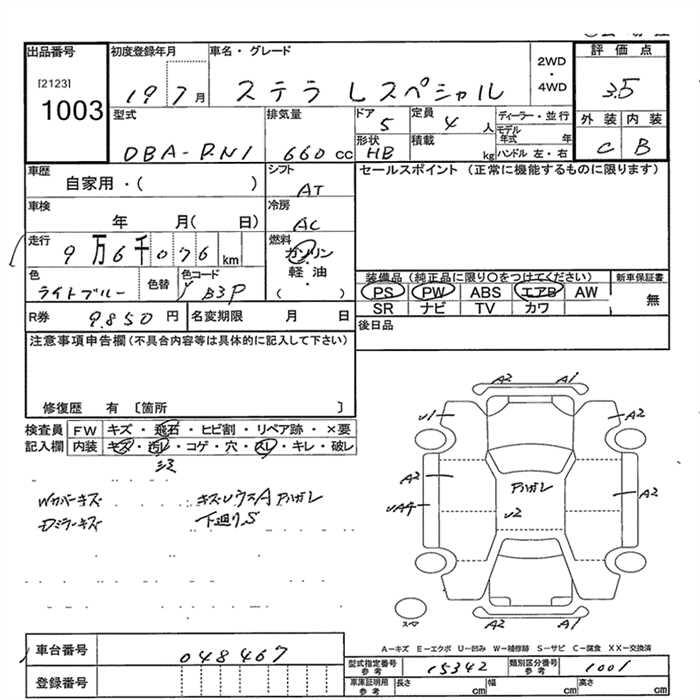 出品番号 初度登録年月 車名・グレード 2WD・4WD 評価点
[2123]
1003
19 7月 ステラ Lスペシャル 3.5
外装 内装
C B
型式 排気量 ドア 定員 ディーラー・並行
DBA-RN1 660cc 5 4人 モデル年式 年
形状 積載 ハンドル 左・右
HB kg
車歴 シフト セールスポイント (正常に機能するものに限ります)
自家用・( ) AT
車検 冷房
年 月( 日) AC
走行 燃料
9万6千076km ガソリン
軽油
( ・ )
色 色替 色コード
ライトブルー B3P
装備品(純正品に限り○をつけてください) 新車保証書
PS PW ABS エアB AW 無
SR ナビ TV カワ
R券 9,850円 名変期限 月 日
後日品
注意事項申告欄(不具合内容等は具体的に記入して下さい)
修復歴 有 〔箇所 〕
検査員 FW キズ・飛石・ヒビ割・リペア跡・×要
記入欄 内装 キズ・汚レ・コゲ・穴・スレ・キレ・破レ
Wカバーキズ
Dミラーキズ
下廻りS
A2 A1
U1 A2
A2 アハガレ A2
UA4 U2
A2 A1
スペア
A-キズ E-エクボ U-凹み W-補修跡 S-サビ C-腐食 XX-交換済
車台番号 048467
型式指定番号 参考 15342 類別区分番号 参考 1001
登録番号
車庫証明用 参考 長さ cm 幅 cm 高さ cm